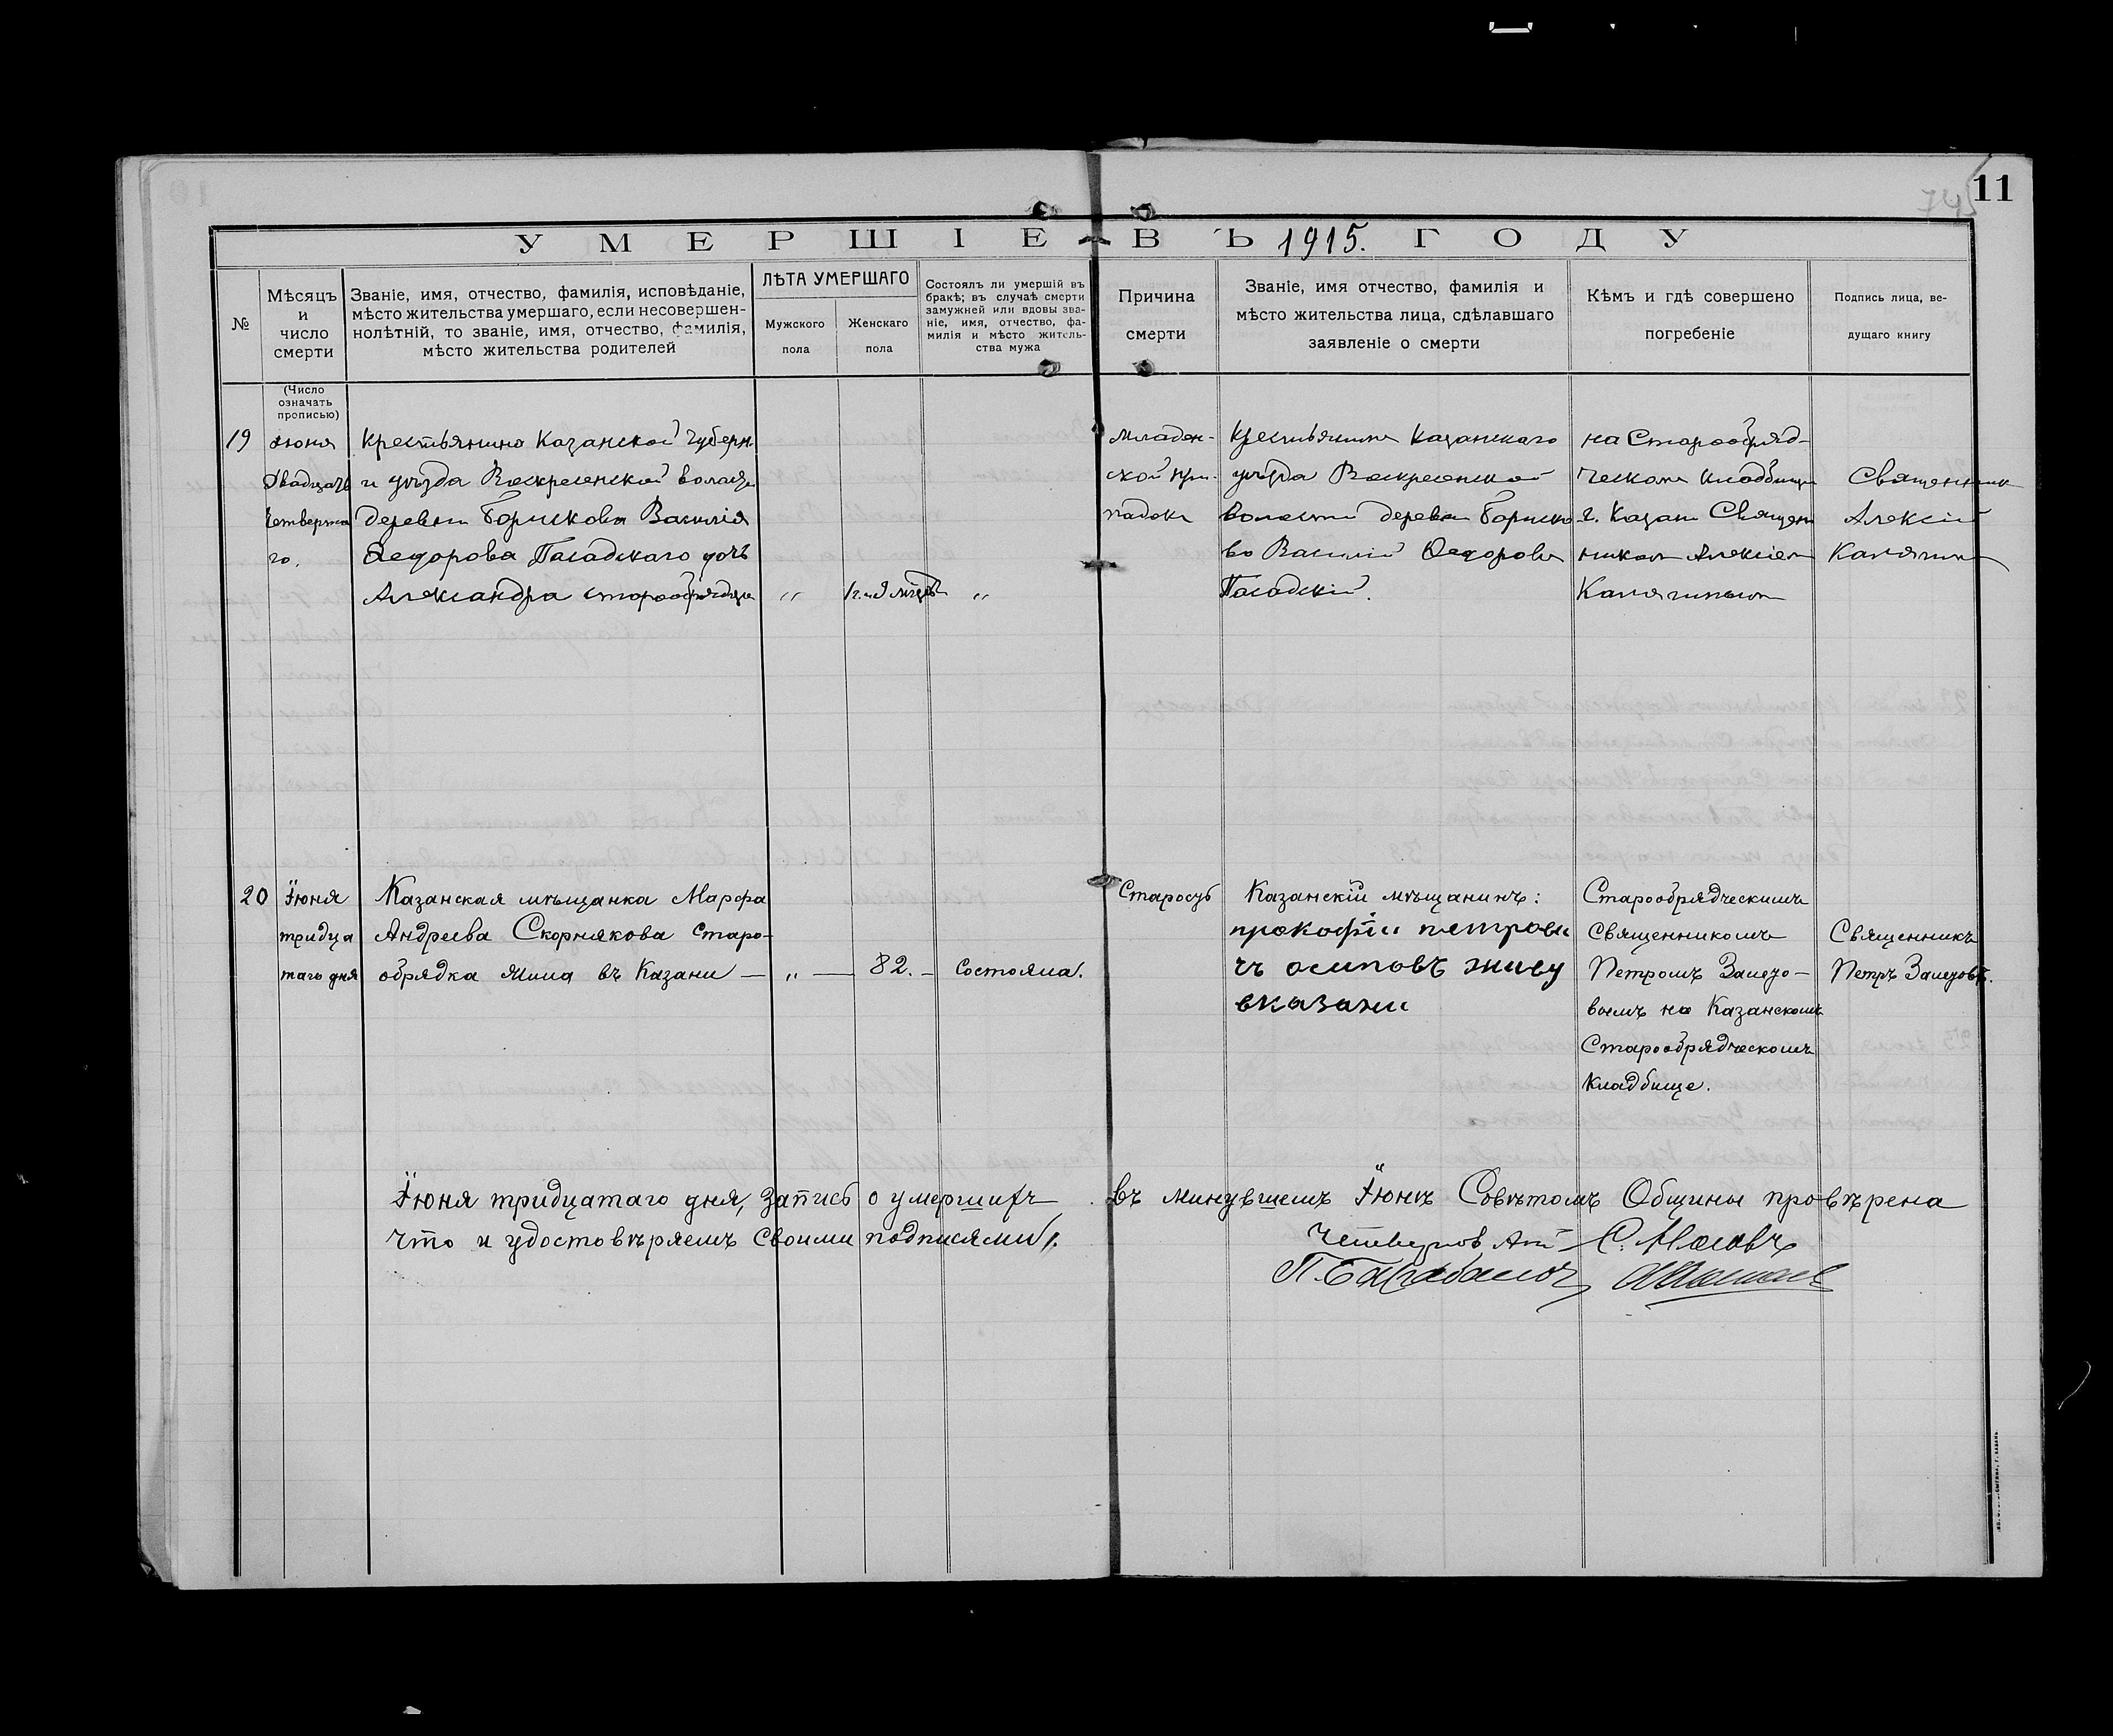 11
УМЕРШІЕ ВЪ 1915. ГОДУ
№
Мѣсяцъ
и
число
смерти
Званіе, имя, отчество, фамилія, исповѣданіе,
мѣсто жительства умершаго, если несовершен-
нолѣтній, то званіе, имя, отчество, фамилія,
мѣсто жительства родителей
ЛѢТА УМЕРШАГО
Мужского
пола
Женскаго
пола
Состоялъ ли умершій въ
бракѣ; въ случаѣ смерти
замужней или вдовы зва-
ніе, имя, отчество, фа-
милія и мѣсто житель-
ства мужа
Причина
смерти
Званіе, имя отчество, фамилія и
мѣсто жительства лица, сдѣлавшаго
заявленіе о смерти
Кѣмъ и гдѣ совершено
погребеніе
Подпись лица, ве-
дущаго книгу
(Число
означать
прописью)
19
Іюня
Двадцать
четверта
го.
Крестьянина Казанской Губерн.
и уѣзда Воскресенской волости
деревни Борисково Василія
Ѳедорова Пасадскаго дочь
Александра старообрядца
"
1 г. и 9 мѣсяцъ
"
Младен-
ской при-
падокъ
Крестьянинъ Казанскаго
уѣзда Воскресенской
волости деревни Бориско
во Василій Ѳедоровъ
Пасадскій.
на Старообряд-
ческомъ кладбищѣ
г. Казани Священ
никомъ Алексіем
Калягинымъ
Священник
Алексій
Калягинъ
20
Іюня
тридца
таго дня
Казанская мѣщанка Марфа
Андреева Скорнякова Старо-
обрядка жила въ Казани —
" —
82. —
Состояла.
Старость
Казанскій мѣщанинъ:
прокофіи петрови
чъ осиповъ живу
вказани
Старообрядческимъ
Священникомъ
Петромъ Залето-
вымъ на Казанскомъ
Старообрядческомъ
Кладбище.
Священникъ
Петръ Залетовъ.
Іюня тридцатаго дня, запись о умершихъ въ минувшемъ Іюнѣ Совѣтомъ Общины провѣрена
что и удостовѣряемъ своими подписями.
С. Мосовъ
П. Барабанов